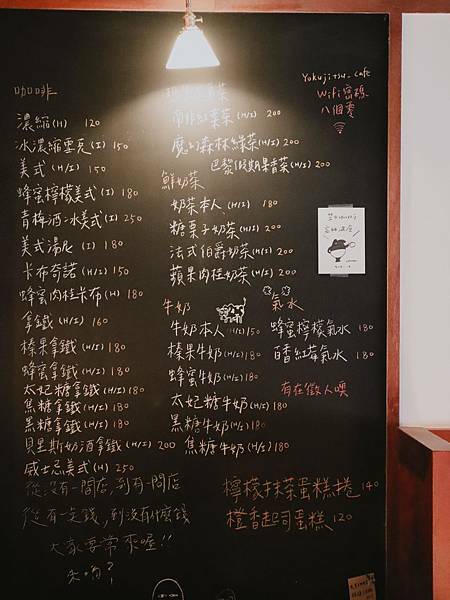 咖啡
濃縮(H) 120
冰濃縮重克(I) 150
美式(H/I) 150
蜂蜜檸檬美式(I) 180
青梅酒冰美式(I) 250
美式湯尼(I) 180
卡布奇諾(H/I) 150
蜂蜜肉桂卡布(H) 180
拿鐵(H/I) 160
榛果拿鐵(H/I) 180
蜂蜜拿鐵(H/I) 180
太妃糖拿鐵(H/I) 180
焦糖拿鐵(H/I) 180
黑糖拿鐵(H/I) 180
貝里斯奶酒拿鐵(H/I) 200
威士忌美式(H) 250
從沒有一間店,到有一間店
從有一支錢,到沒有什麼錢
大家要常來喔!!
茶
南非紅葉茶(H/I) 200
魔幻森林綠茶(H/I) 200
巴黎假期果香茶(H/I) 200
鮮奶茶
奶茶本人(H/I) 180
糖栗子奶茶(H/I) 200
法式伯爵奶茶(H/I) 200
蘋果肉桂奶茶(H/I) 200
牛奶
牛奶本人(H/I) 150
榛果牛奶(H/I) 180
蜂蜜牛奶(H/I) 180
太妃糖牛奶(H/I) 180
黑糖牛奶(H/I) 180
焦糖牛奶(H/I) 180
氣水
蜂蜜檸檬氣水 180
百香紅莓氣水 180
有在徵人噢
檸檬抹茶蛋糕捲 140
橙香起司蛋糕 120
Yokujitsu_cafe
Wifi密碼
八個零